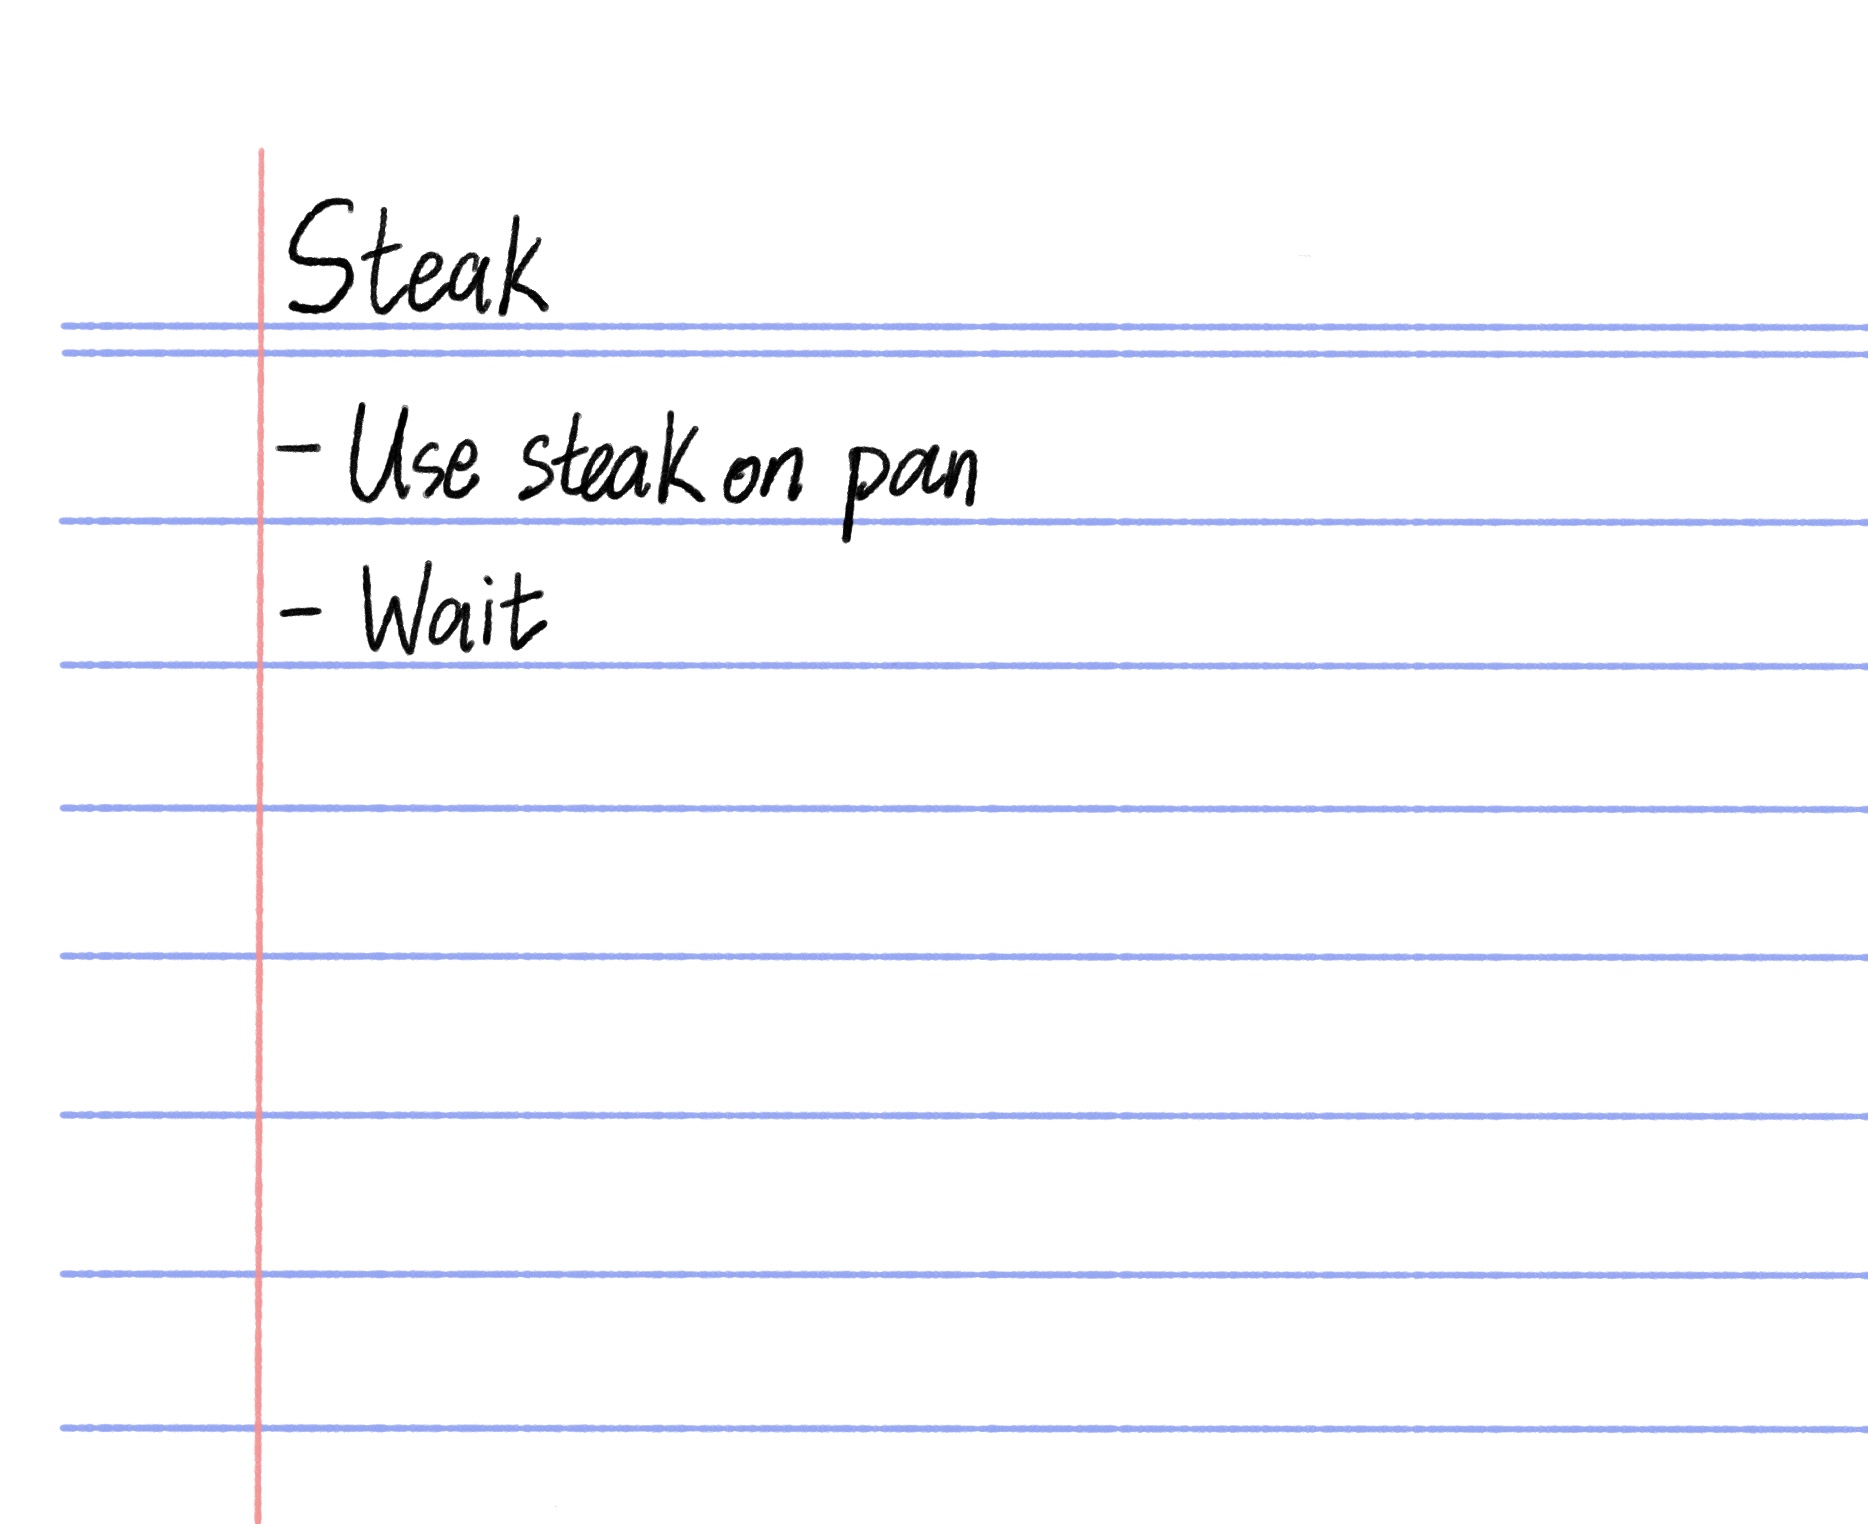 Steak
- Use steak on pan
- Wait